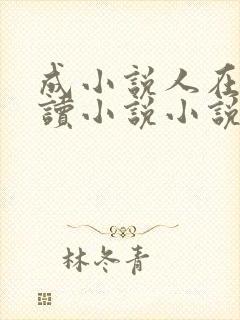 成小說人在
讀小說小說
林冬青